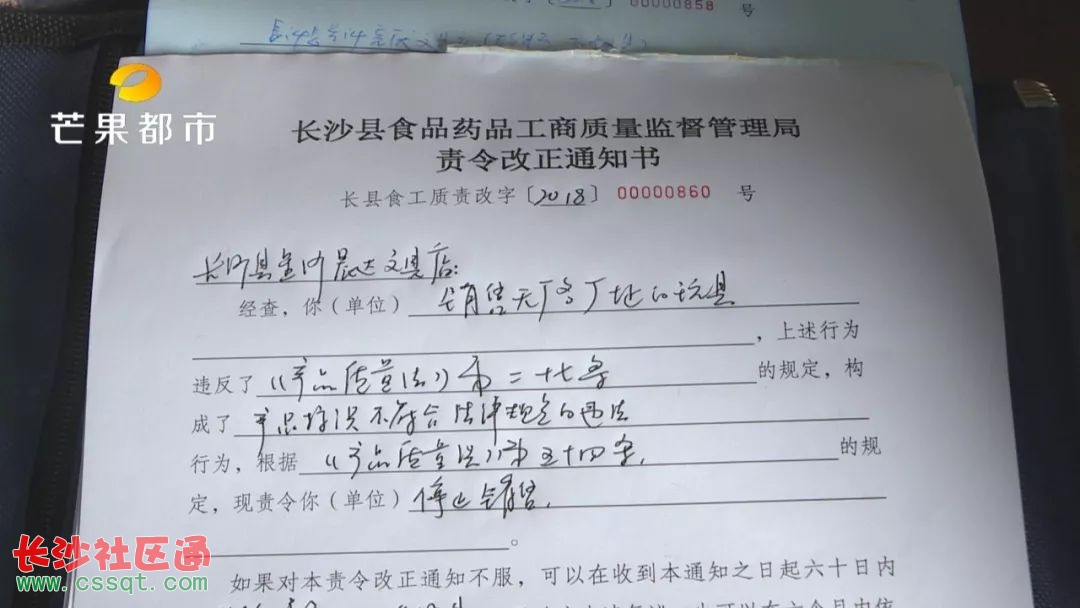 00000858 号
芒果都市
长沙县食品药品工商质量监督管理局
责令改正通知书
长县食工质责改字〔2018〕 00000860 号
长沙县金沙晨达文具店:
经查,你(单位) 销售无厂名厂址的玩具
,上述行为
违反了《产品质量法》第二十七条 的规定,构
成了 产品标识不符合法律规定的违法
行为,根据 《产品质量法》第五十四条, 的规
定,现责令你(单位) 停止销售,
。
如果对本责令改正通知不服,可以在收到本通知之日起六十日内
长沙社区通
www.cssqt.com